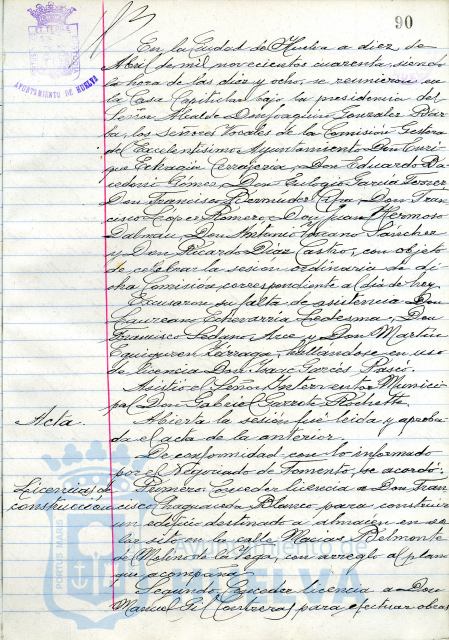 90
AYUNTAMIENTO DE HUELVA
En la Ciudad de Huelva a diez de
Abril de mil novecientos cuarenta, siendo
la hora de las diez y ocho, se reunieron en
la Casa Capitular bajo la presidencia del
Señor Alcalde Don Joaquín Gonzalez Barba,
los Señores Vocales de la Comisión Gestora
del Excelentísimo Ayuntamiento Don Enri
que Cerrajería, Don Eduardo
Gómez, Don Eulogio García
Don Francisco Bermudez Don Fran
cisco Lopez Romero, Don Juan Hermoso
Dalmau, Don Antonio Sánchez
y Don Ricardo Díaz Castro, con objeto
de celebrar la sesión ordinaria de di
cha Comisión, correspondiente al día de hoy.
Excusaron su falta de asistencia Don
Laureano Echevarría Ledesma, Don
Francisco Sedano Arce y Don Martín
Eguiguren hallándose en uso
de licencia Don Garcés Pasco.
Asistió el Señor Interventor Munici
pal Don Gabriel Garrote
Acta.
Abierta la sesión fué leida y aproba
da el acta de la anterior.
De conformidad con lo informado
por el Negociado de Fomento, se acordó:
Licencias de
construcción
Primero. Conceder licencia a Don Fran
cisco Chaguaceda Blanco para construir
un edificio destinado a almacén en so
lar sito en la calle Macias Belmonte
de Molino de la Vega, con arreglo al plano
que acompaña.
Segundo. Conceder licencia a Don
Manuel Gil Contreras para efectuar obras
PORTUS MARIS
HUELVA